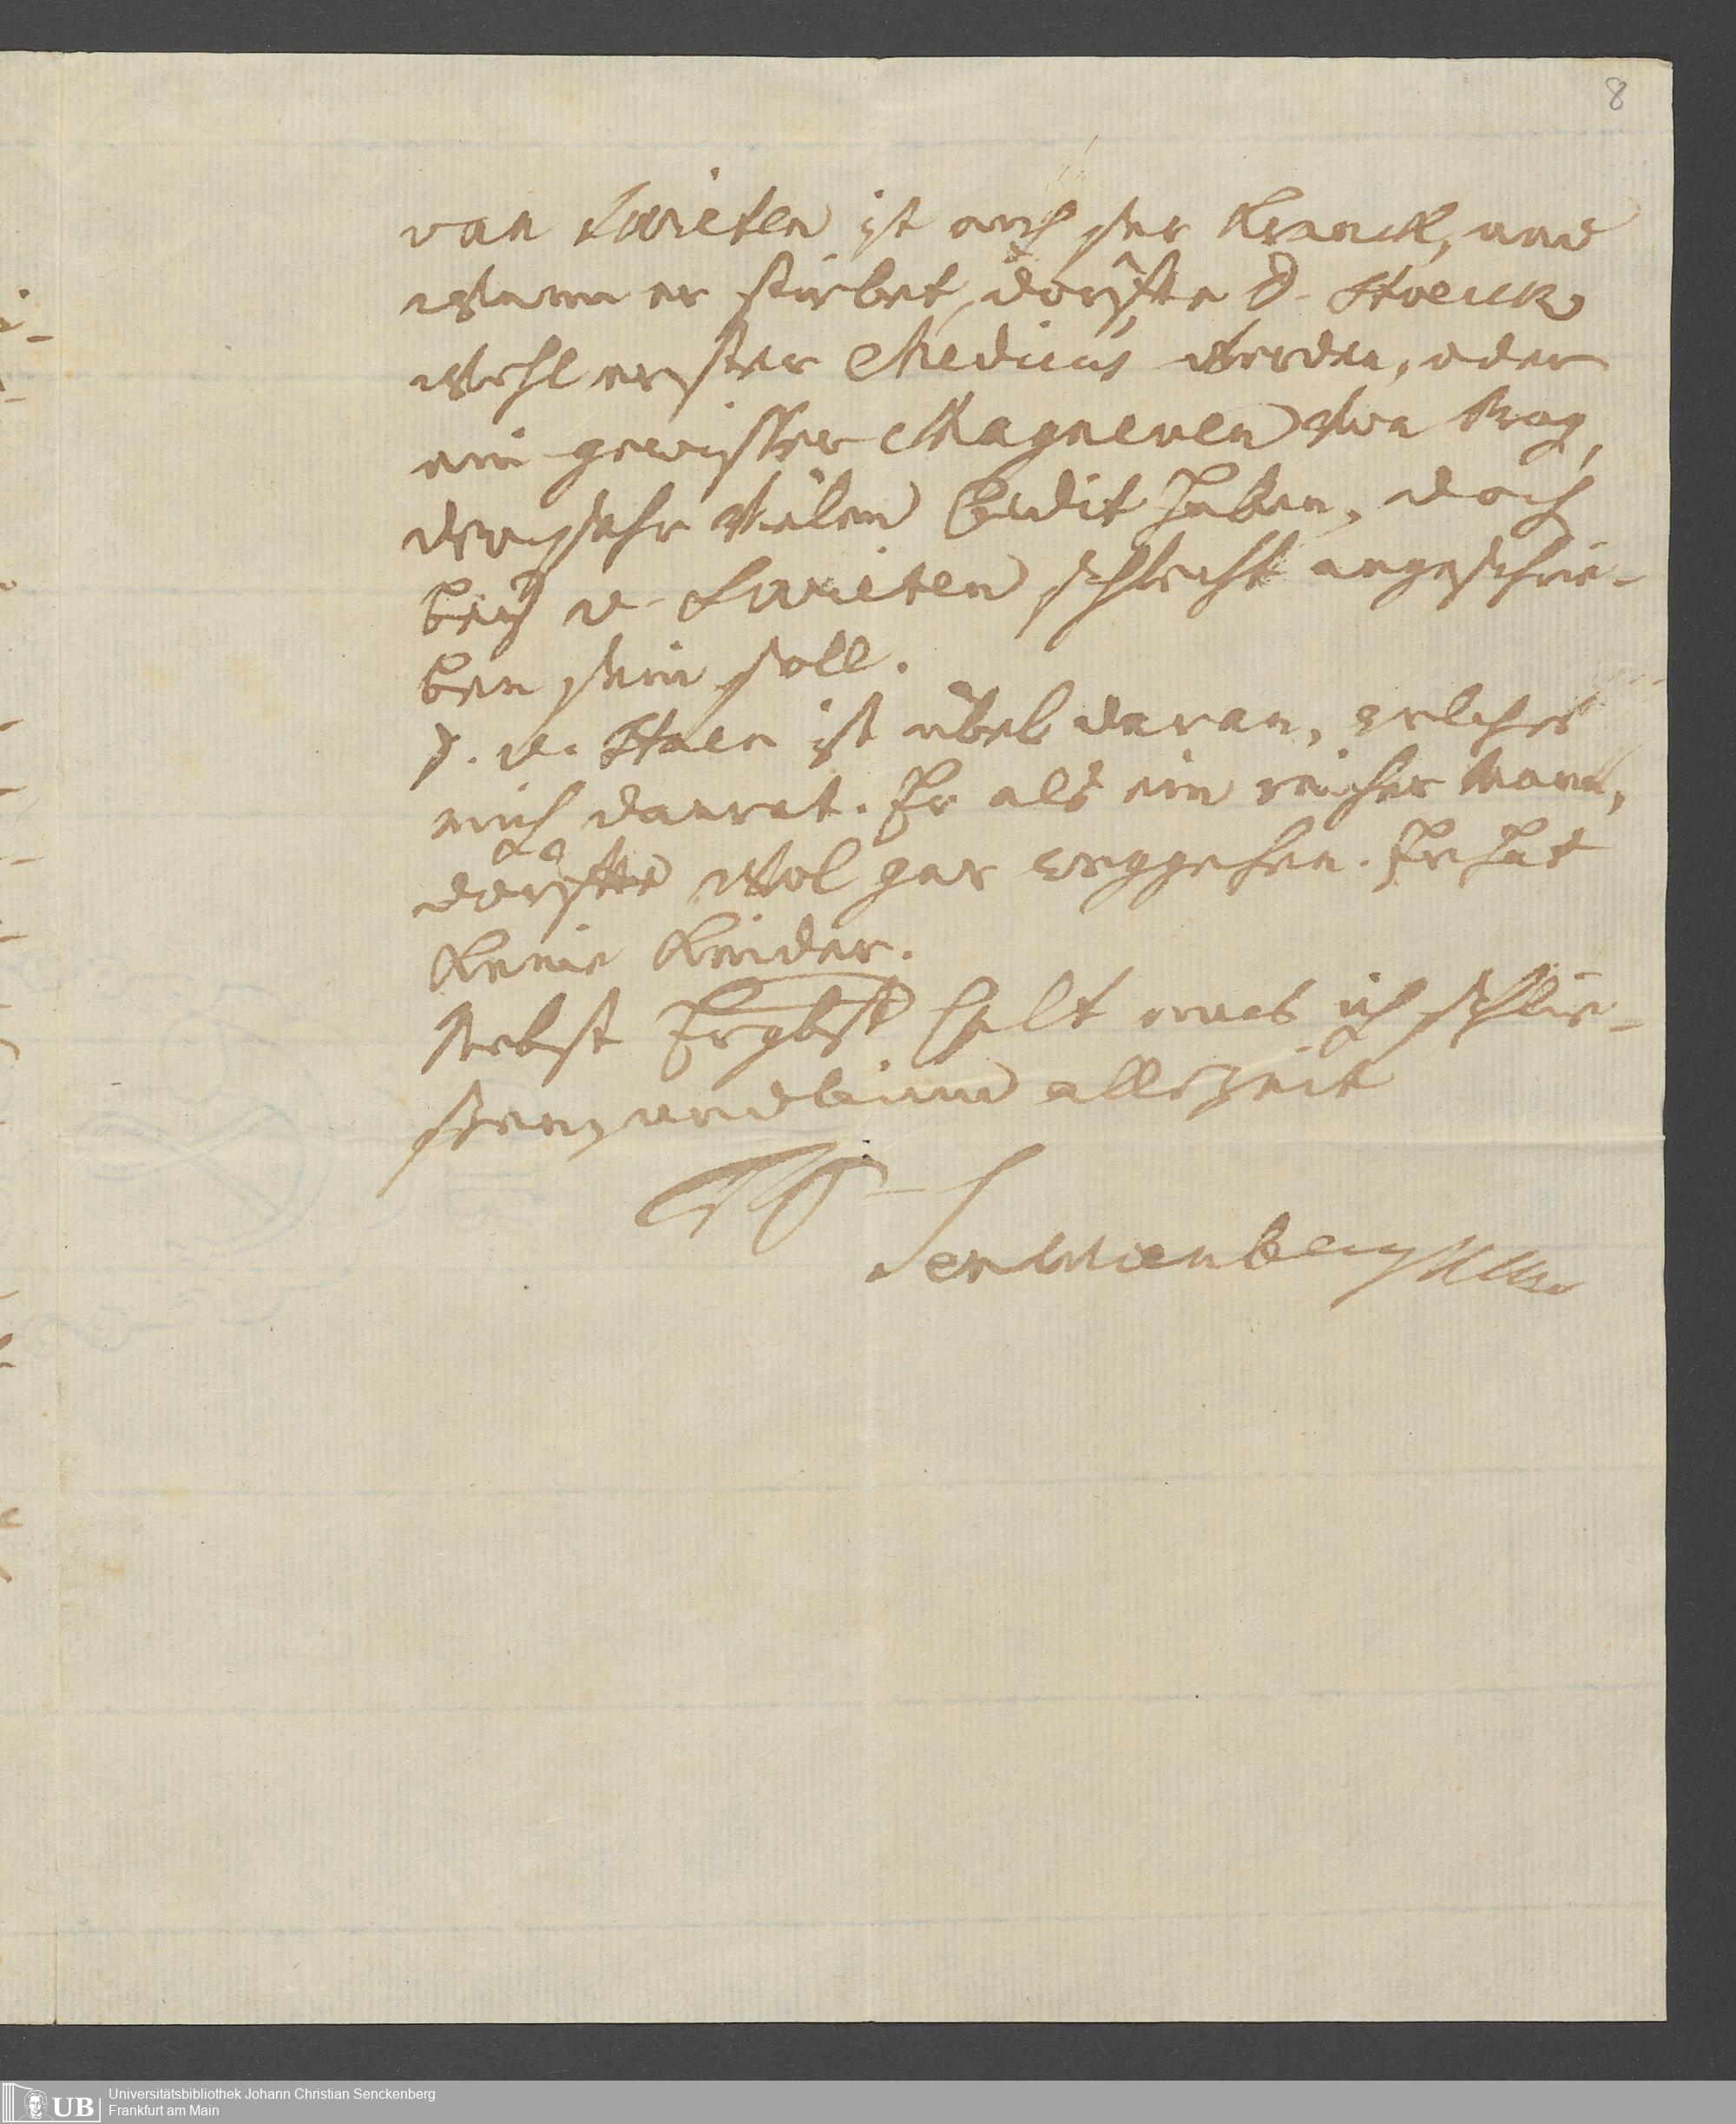 8
van Swieten ist auch sehr Kranck, und
Wann er stirbet, dörffte D. Stoerck
Wohl erster Medicus Werden, oder
ein gewisser Magneven Von Prag,
der sehr Vielen Credit haben, doch
beÿ v. Swieten schlecht angeschrie-
ben sein soll.
D. v. Haen ist übel daran, welches
mich dauret. Er als ein reicher Mann,
dörffte Wol gar weggehen. Er hat
Keine Kinder.
Nebst Ergbst
schlie-
und allezeit
Senckenberg
UB Universitätsbibliothek Johann Christian Senckenberg
Frankfurt am Main